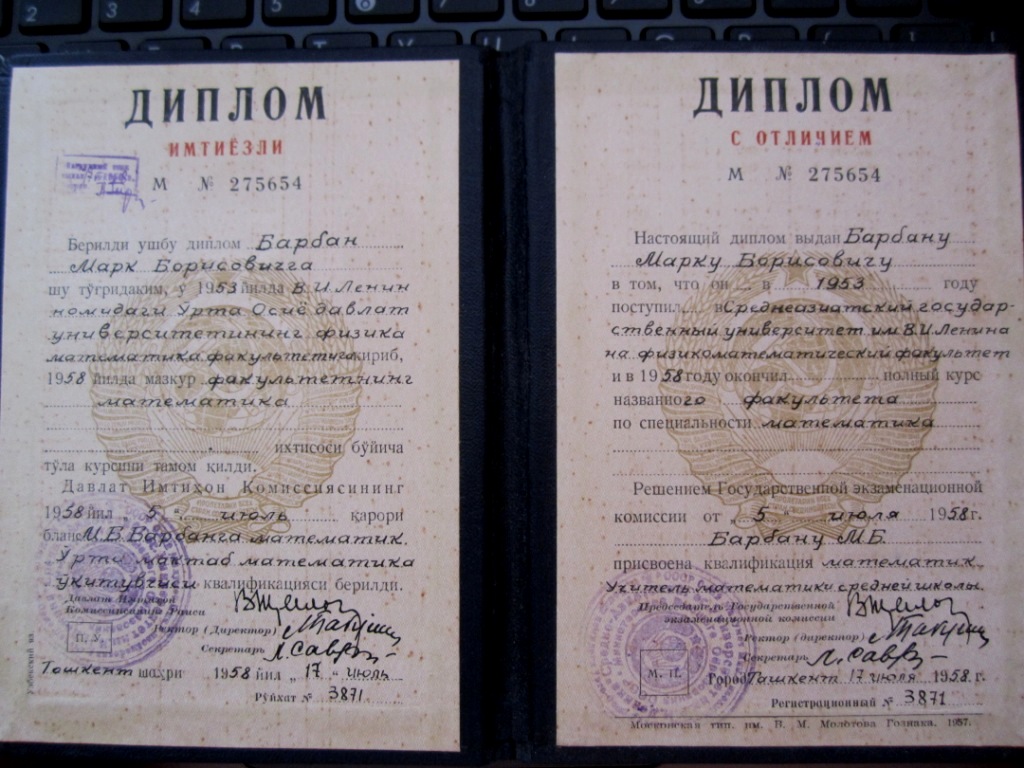 ДИПЛОМ
ИМТИЁЗЛИ
М № 275654
Берилди ушбу диплом Барбан
Марк Борисовичга
шу тўғридаким, у 1953 йилда В.И.Ленин
номидаги Ўрта Осиё давлат
университетининг физика
математика факультетига кириб,
1958 йилда мазкур факультетнинг
математика
ихтисоси бўйича
тўла курсини тамом қилди.
Давлат Имтиҳон Комиссиясининг
1958 йил „ 5 “ июль қарори
билан М.Б.Барбанга математик.
Ўрта мактаб математика
ўқитувчиси квалификацияси берилди.
Давлат Имтиҳон
Комиссиясининг Раиси
Ректор (Директор)
Секретарь
П. У.
Тошкент шаҳри 1958 йил „ 17 “ июль
Рўйхат № 3871
Узбекский яз
ДИПЛОМ
С ОТЛИЧИЕМ
М № 275654
Настоящий диплом выдан Барбану
Марку Борисовичу
в том, что он в 1953 году
поступил в Среднеазиатский государ-
ственный университет им. В.И.Ленина
на физикоматематический факультет
и в 1958 году окончил полный курс
названного факультета
по специальности математика
Решением Государственной экзаменационной
комиссии от „ 5 “ июля 1958 г.
Барбану М.Б.
присвоена квалификация математик.
Учитель математики средней школы.
Председатель Государственной
экзаменационной комиссии
Ректор (директор)
Секретарь
М. П.
Город Ташкент 17 июля 1958 г.
Регистрационный № 3871
Московская тип. им. В. М. Молотова Гознака. 1957.